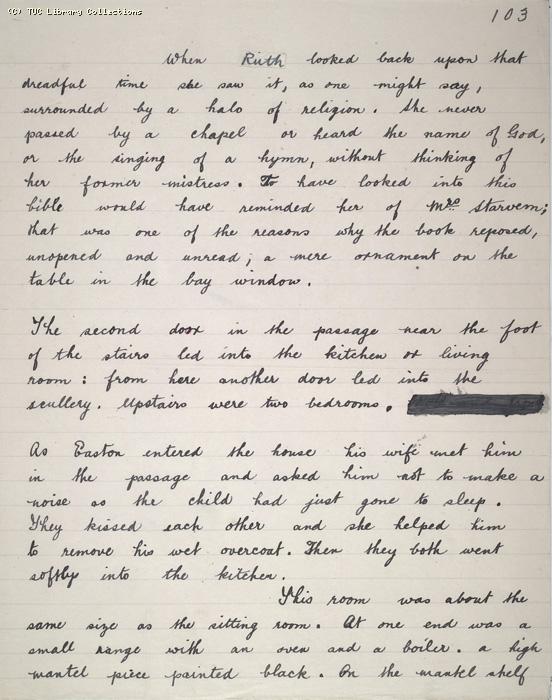 (C) TUC Library Collections
103
When Ruth looked back upon that
dreadful time she saw it, as one might say,
surrounded by a halo of religion. She never
passed by a chapel or heard the name of God,
or the singing of a hymn, without thinking of
her former mistress. To have looked into this
bible would have reminded her of Mrs Starvem;
that was one of the reasons why the book reposed,
unopened and unread; a mere ornament on the
table in the bay window.
The second door in the passage near the foot
of the stairs led into the kitchen or living
room: from here another door led into the
scullery. Upstairs were two bedrooms.
As Easton entered the house his wife met him
in the passage and asked him not to make a
noise as the child had just gone to sleep.
They kissed each other and she helped him
to remove his wet overcoat. Then they both went
softly into the kitchen.
This room was about the
same size as the sitting room. At one end was a
small range with an oven and a boiler. a high
mantel piece painted black. On the mantel shelf